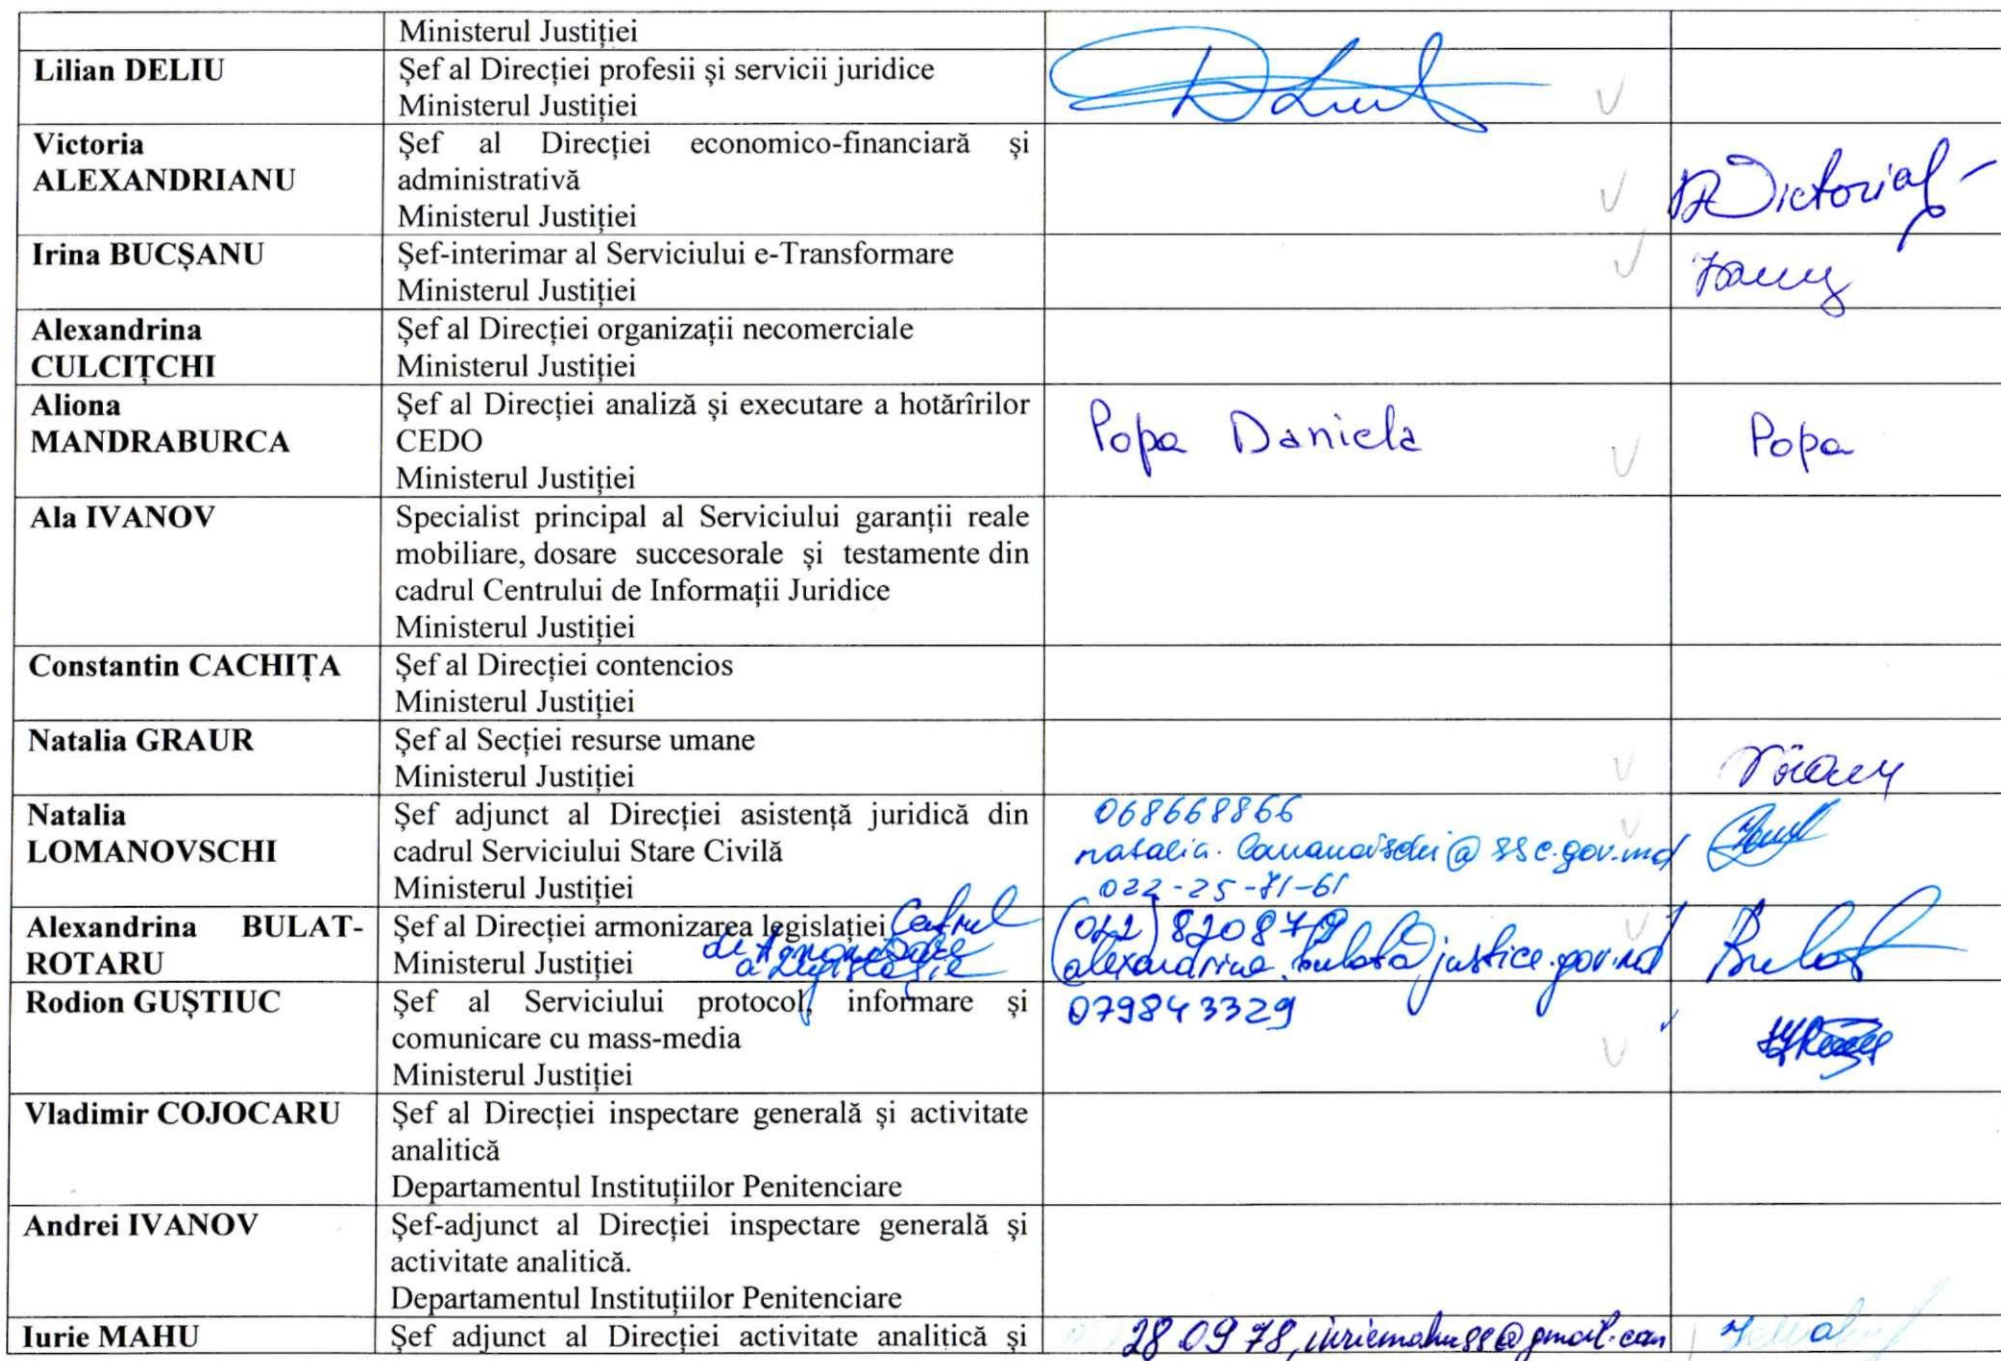 Ministerul Justiției
Lilian DELIU
Șef al Direcției profesii și servicii juridice
Ministerul Justiției
Victoria
ALEXANDRIANU
Șef al Direcției economico-financiară și
administrativă
Ministerul Justiției
Victoria
Irina BUCȘANU
Șef-interimar al Serviciului e-Transformare
Ministerul Justiției
Alexandrina
CULCIȚCHI
Șef al Direcției organizații necomerciale
Ministerul Justiției
Aliona
MANDRABURCA
Șef al Direcției analiză și executare a hotărîrilor
CEDO
Ministerul Justiției
Popa Daniela
Popa
Ala IVANOV
Specialist principal al Serviciului garanții reale
mobiliare, dosare succesorale și testamente din
cadrul Centrului de Informații Juridice
Ministerul Justiției
Constantin CACHIȚA
Șef al Direcției contencios
Ministerul Justiției
Natalia GRAUR
Șef al Secției resurse umane
Ministerul Justiției
Natalia
LOMANOVSCHI
Șef adjunct al Direcției asistență juridică din
cadrul Serviciului Stare Civilă
Ministerul Justiției
068668866
natalia.lomanovschi@ssc.gov.md
022-25-71-61
Alexandrina BULAT-
ROTARU
Șef al Direcției armonizarea legislației
Ministerul Justiției
alexandrina.bulat@justice.gov.md
Bulat
Rodion GUȘTIUC
Șef al Serviciului protocol, informare și
comunicare cu mass-media
Ministerul Justiției
079843329
Vladimir COJOCARU
Șef al Direcției inspectare generală și activitate
analitică
Departamentul Instituțiilor Penitenciare
Andrei IVANOV
Șef-adjunct al Direcției inspectare generală și
activitate analitică.
Departamentul Instituțiilor Penitenciare
Iurie MAHU
Șef adjunct al Direcției activitate analitică și
28 09 78,